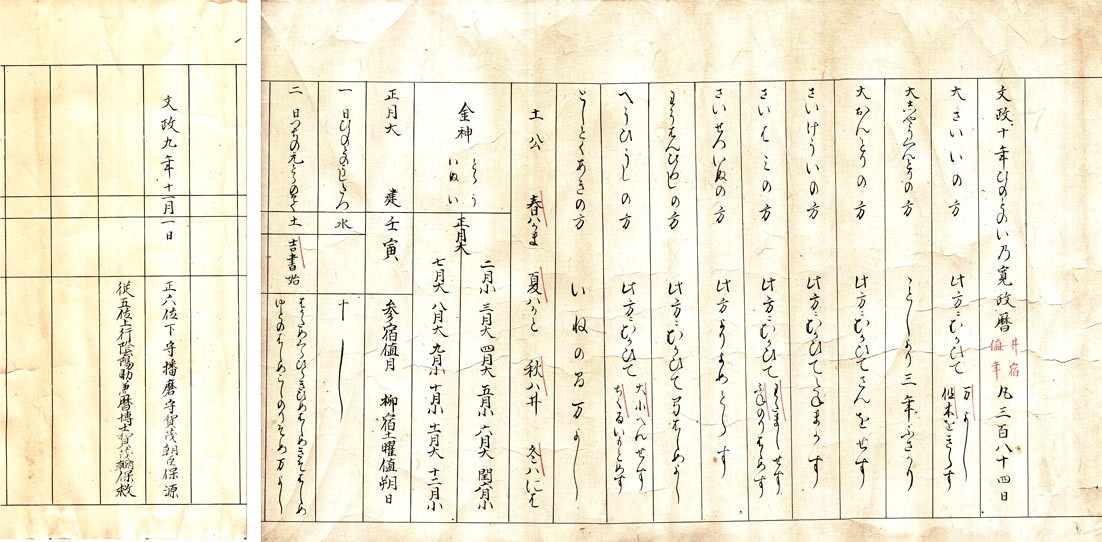 文政十年ひのとのい乃寛政暦 井宿値年 凡三百八十四日
大さいいの方 此方にむかひて 万よし 但木をきらす
大しやうくんとりの方 ことしより三年ふさかり
大おんとりの方 此方にむかひてさんをせす
さいけういの方 此方にむかひてたねまかす
さいはミの方 此方にむかひて わたましせす ふねのりはしめす
さいせついぬの方 此方よりよめとらす
わうはんひつしの方 此方にむかひて弓はしめよし
へうひうしの方 此方にむかひて 大小へんせす ちくるいもとめす
としとくあきの方 いねの間万よし
土公 春ハかま 夏ハかと 秋ハ井 冬ハにわ
金神 とらう いぬい
正月大 二月小 三月大 四月大 五月小 六月大 閏六月小
七月大 八月大 九月小 十月小 十一月大 十二月小
正月大 建壬寅 参宿値月 柳宿土曜値朔日
一日 水 十
二日 土 吉書始 万よし
文政九年十一月一日
正六位下守播磨守賀茂朝臣保源
従五位上行陰陽助兼暦博士賀茂朝臣保救